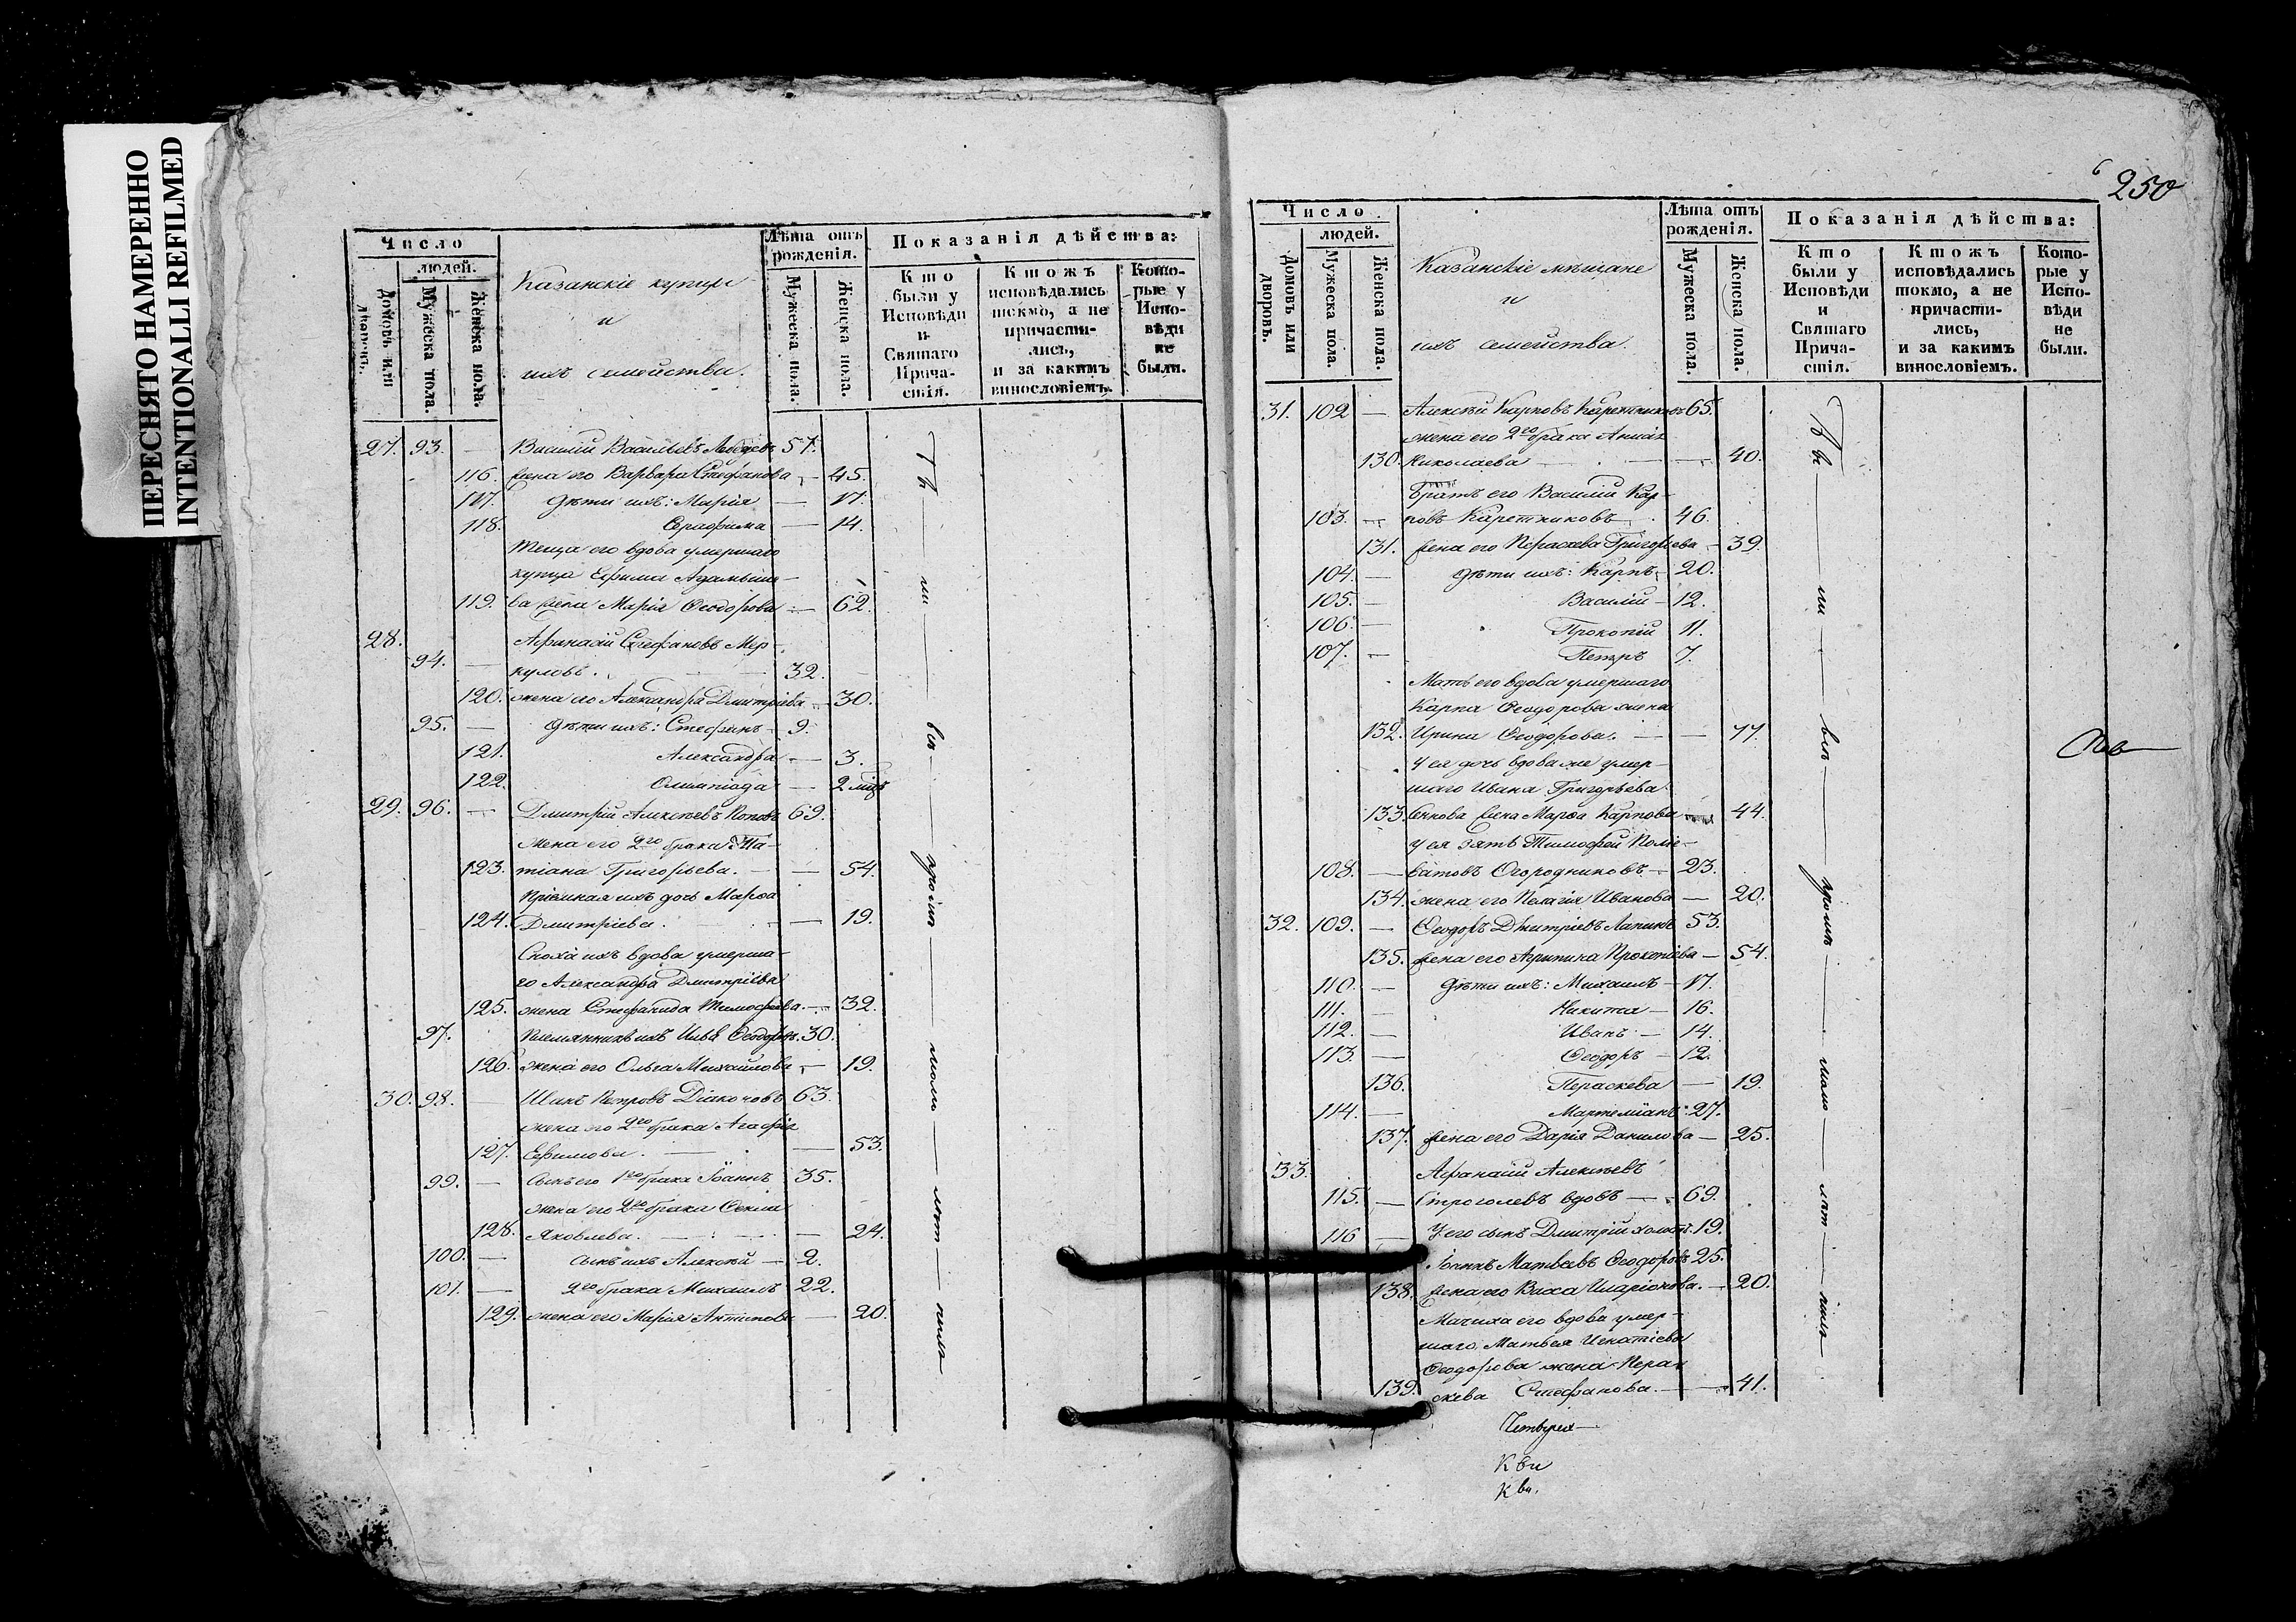 ПЕРЕСНЯТО НАМЕРЕННО
INTENTIONALLI REFILMED
Число
людей.
Домовъ или дворовъ.
Мужеска пола.
Женска пола.
Казанскіе купцы
и
ихъ семейства.
Лѣта отъ рожденія.
Мужеска пола.
Женска пола.
Показанія дѣйства:
Кто были у Исповѣди и Святаго Прича-стія.
Ктожъ исповѣдались токмо, а не причасти-лись, и за какимъ винословіемъ.
Кото-рые у Испо-вѣди не были.
27. 93. — Василій Васильевъ Лебедев 57.
116. жена его Варвара Стефанова — 45.
117. дѣти ихъ: Марія — 17.
118. Серафима — 14.
Теща его вдова умершаго
купца Ефима
119. ва жена Марія Ѳеодорова — 62.
28. Афанасій Стефановъ Мер-
94. — куловъ. 32.
120. жена его Александра Дмитріева — 30.
95. — дѣти ихъ: Стефанъ — 9.
121. Александра — 3.
122. Олимпіада — 2 мцъ
29. 96. — Дмитрій Алексѣевъ Поповъ 69.
Жена его 2го брака Та-
123. тіана Григорьева. — 54.
Пріемная ихъ дочь Марѳа
124. Дмитріева. — 19.
Сноха ихъ вдова умерша-
го Александра Дмитріева
125. жена Стефанида Тимофѣева. — 32.
97. Племянникъ ихъ Илья Ѳеодоровъ. 30.
126. жена его Ольга Михайлова — 19.
30. 98. — Петровъ Діаконовъ 63.
жена его 2го брака Агафія
127. Ефимова. — 53.
99. — Сынъ его 1го брака Іоаннъ 35.
жена его 2го брака Ѳекла
128. Яковлева. — 24.
100. — сынъ ихъ Алексѣй — 2.
101. — 2го брака Михаилъ 22.
129. жена его Марія Антипова — 20.
250
Число
людей.
Домовъ или дворовъ.
Мужеска пола.
Женска пола.
Казанскіе мѣщане
и
ихъ семейства.
Лѣта отъ рожденія.
Мужеска пола.
Женска пола.
Показанія дѣйства:
Кто были у Исповѣди и Святаго Прича-стія.
Ктожъ исповѣдались токмо, а не причасти-лись, и за какимъ винословіемъ.
Кото-рые у Испо-вѣди не были.
31. 102 — Алексѣй Карповъ Каретниковъ 65.
жена его 2го брака Анна
130. Николаева — 40.
Братъ его Василій Кар-
103. — повъ Каретниковъ — 46.
131. жена его Пераскева Григорьева — 39.
104. — дѣти ихъ: Карпъ 20.
105. — Василій — 12.
106. — Прокопій 11.
107. — Петръ 7.
Мать его вдова умершаго
Карпа Ѳеодорова жена
132. Ирина Ѳеодорова. — 77.
У ея дочь вдова же умер-
шаго Ивана Григорьева
133. жена Марѳа Карпова — 44.
У ея зять Тимофей Поли-
108. — Огородниковъ — 23.
134. жена его Пелагія Иванова — 20.
32. 109. — Ѳеодоръ Дмитріевъ Лапинъ 53.
135. жена его Агрипина Прокопіева — 54.
110. — дѣти ихъ: Михаилъ — 17.
111. — Никита — 16.
112. — Иванъ — 14.
113. — Ѳеодоръ — 12.
136. Пераскева — 19.
114. — Мартеміанъ 27.
137. жена его Дарія Данилова — 25.
33. Афанасій Алексѣевъ
115. — Строголевъ вдовъ — 69.
116 — У его сынъ Дмитрій холостъ 19.
Іоаннъ Матвѣевъ Ѳеодоровъ 25.
138. жена его Васса Иларіонова. — 20.
Мачиха его вдова умер-
шаго Матвея Игнатіева
Ѳеодорова жена Перас
139. кева Стефанова. — 41.